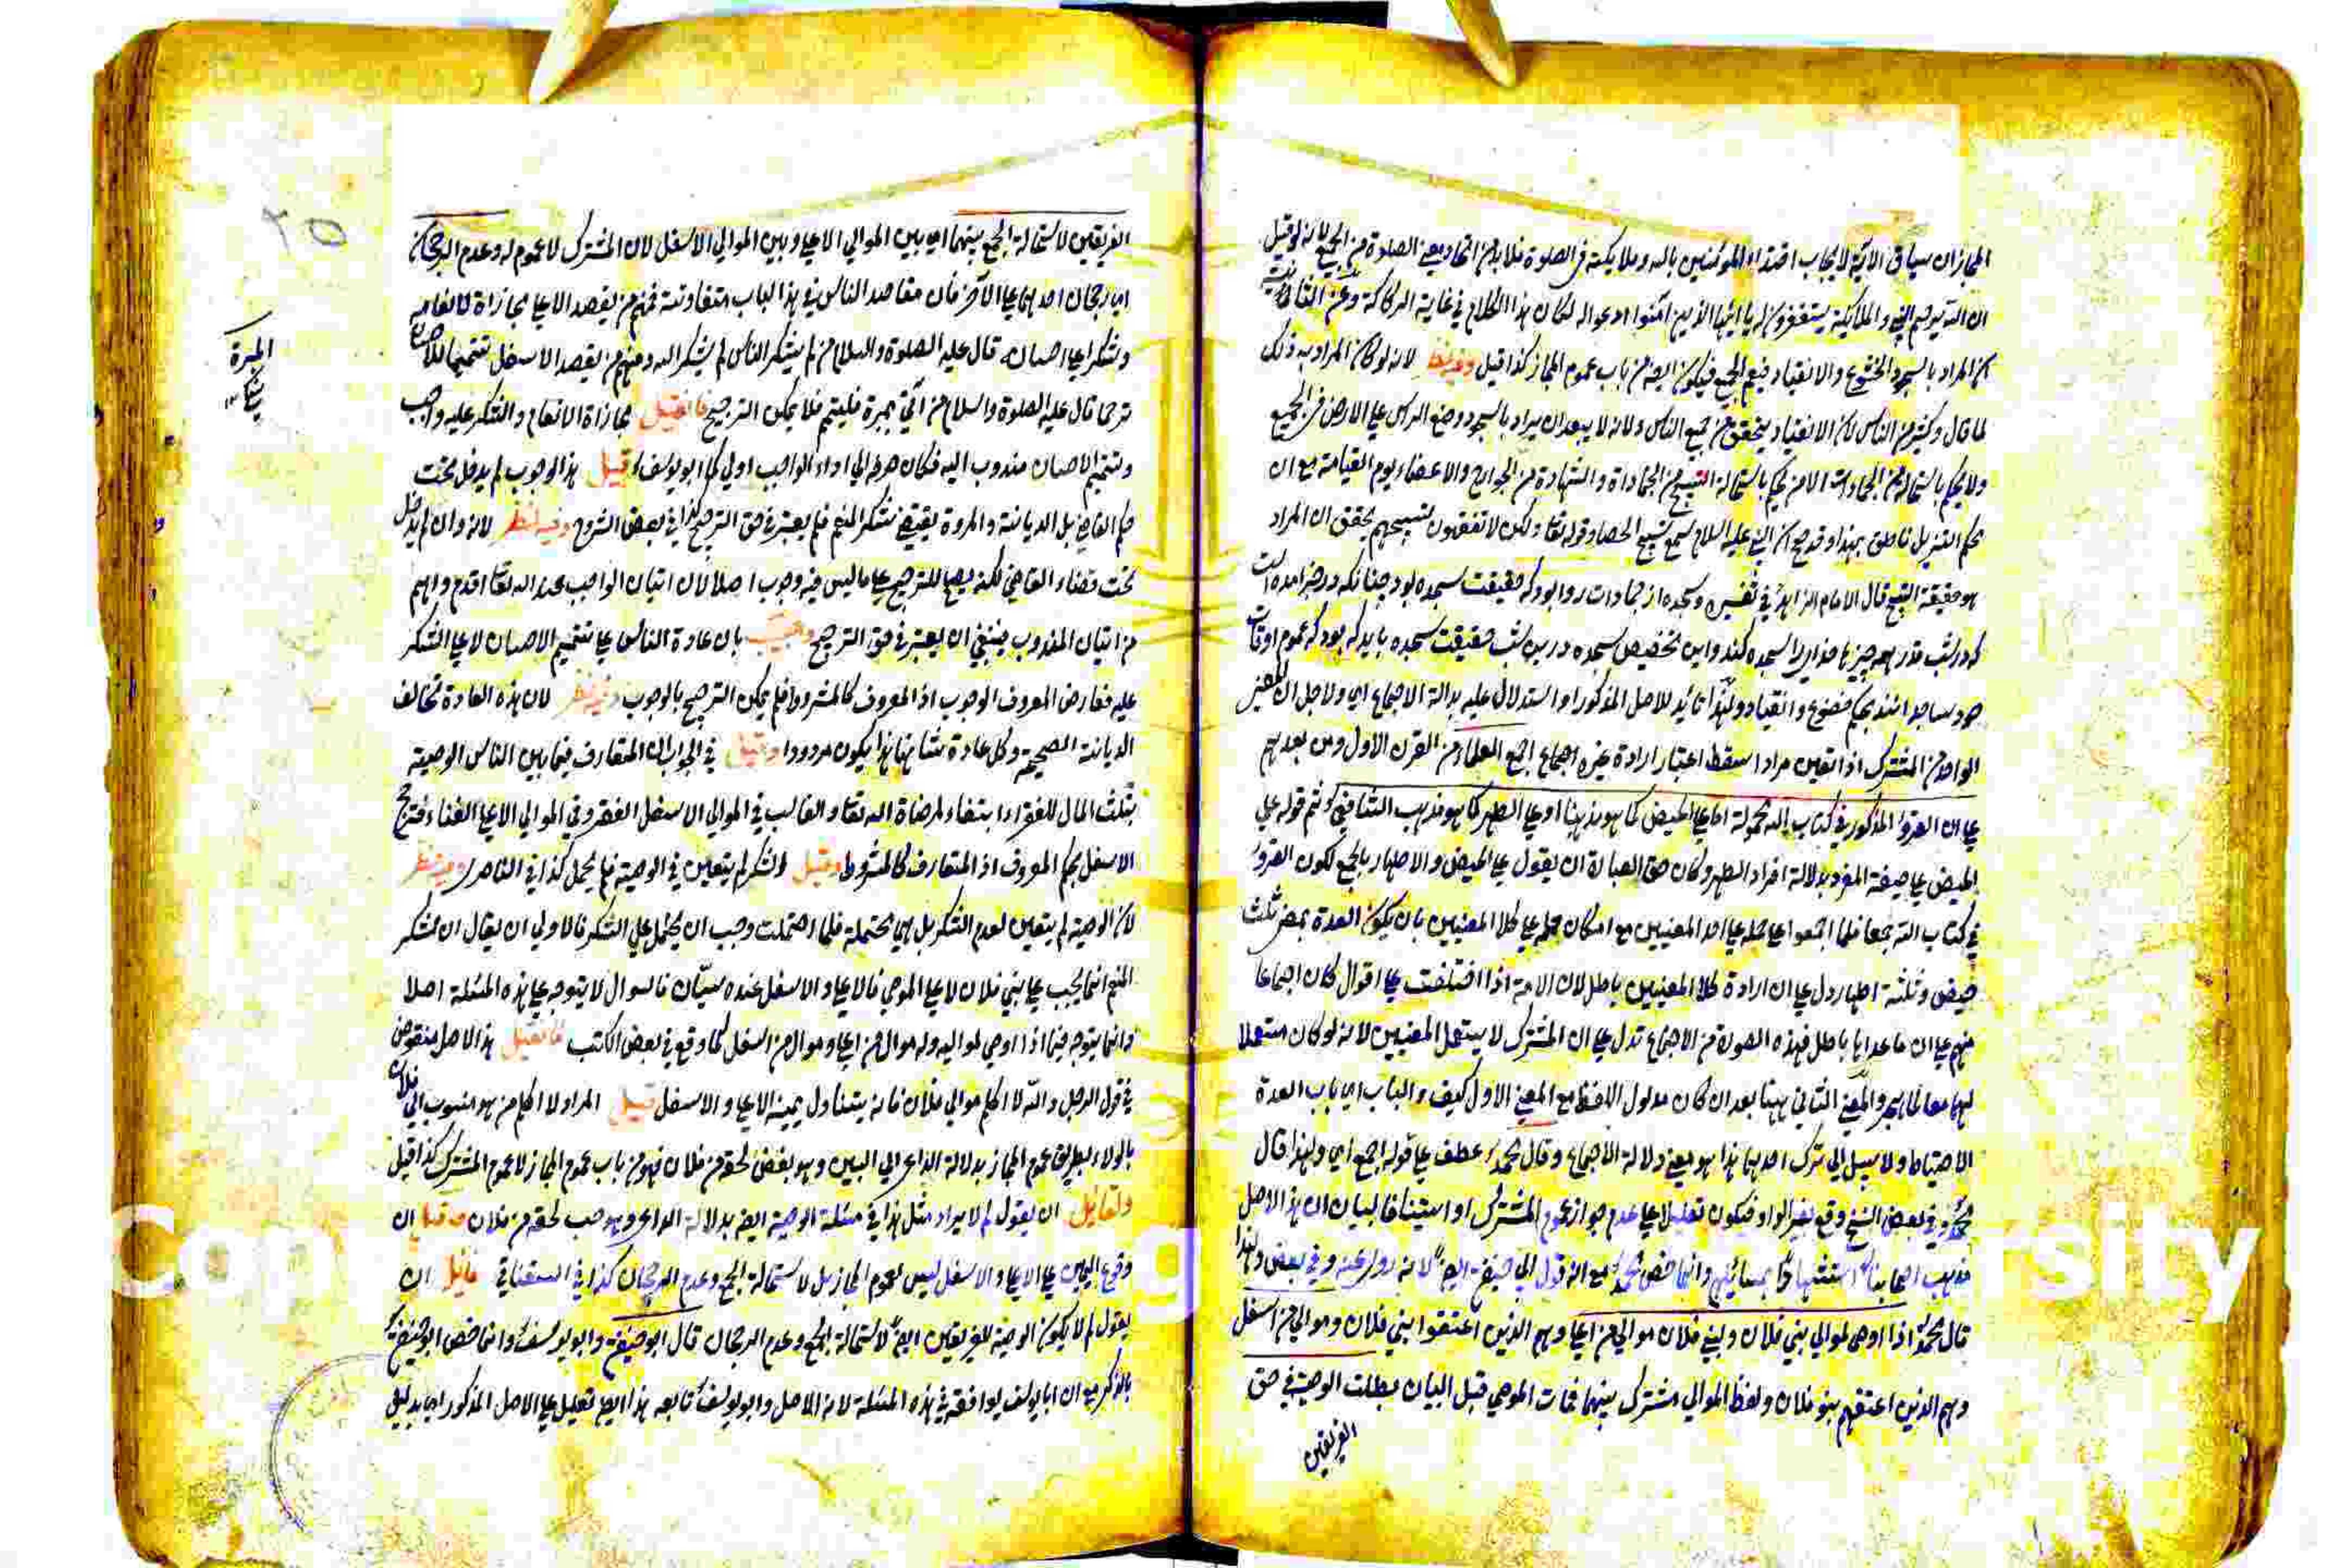 المجاز ان سياق الآية لايجاب اقتداء المؤمنين بالله وملائكته في الصلوة فلا بد من اتحاد معنى الصلوة من الجميع لانه لو قيل
ان الله يرحم النبي والملائكة يستغفرون له يا ايها الذين آمنوا ادعوا له لكان هذا الكلام في غاية الركاكة وعن الثاني
ان المراد بالسجود الخشوع والانقياد فيعم الجميع فيكون ايضا من باب عموم المجاز كذا قيل وفيه نظر لانه لو كان المراد به ذلك
لما قال وكثير من الناس لان الانقياد يتحقق من جميع الناس ولانه لا يبعد ان يراد بالسجود وضع الراس على الارض في الجميع
ولا يحكم باستحالته من الجمادات الا من يحكم باستحالة التسبيح من الجمادات والشهادة من الجوارح والاعضاء يوم القيامة مع ان
محكم التنزيل ناطق بهذا وقد صح ان النبي عليه السلام سمع تسبيح الحصا وقوله تعالى ولكن لا تفقهون تسبيحهم يحقق ان المراد
هو حقيقة التسبيح قال الامام الزاهد في تفسيره وسجده از جمادات روا بود كه حقيقت سجده بود چنانكه در خبر آمده است
كه در شب قدر همه چيزها خداى را سجده كنند واين تخصيص سجده درين شب حقيقت سجده بايد كه بود كه عموم اوقات
خود ساجد اند بحكم خضوع وانقياد ولهذا تائيد للاصل المذكور او استدلال عليه بدلالة الاجماع اى ولاجل ان المعنى
الواحد من المشترك اذا تعين مرادا سقط اعتبار ارادة غيره اجماع اجمع العلماء من القرن الاول ومن بعدهم
على ان القروء المذكور في كتاب الله محمولة اما على الحيض كما هو مذهبنا او على الطهر كما هو مذهب الشافعي ثم قوله على
الحيض على صيغة المفرد بدلالة افراد الطهر وكان حق العبارة ان يقول على الحيض والاطهار بالجمع لكون القروء
في كتاب الله جمعا فلما اجمعوا على حمله على احد المعنيين مع امكان حمله على كلا المعنيين بان يكون العدة بمضي ثلث
حيض وثلثة اطهار دل على ان ارادة كلا المعنيين باطل لان الامة اذا اختلفت على اقوال كان اجماعا
منهم على ان ما عداها باطل فهذه الصورة من الاجماع تدل على ان المشترك لا يستعمل المعنيين لانه لو كان مستعملا
لهما معا لما هجروا المعنى الثاني ههنا بعد ان كان مدلول اللفظ مع المعنى الاول كيف والباب اى باب العدة
الاحتياط ولا سبيل الى ترك احدهما هذا هو معنى دلالة الاجماع وقال محمد عطف على قوله اجمع اى ولهذا قال
محمد وفي بعض النسخ وقع بغير الواو فيكون تعليلا على عدم جواز عموم المشترك او استينافا لبيان ان هذا الاصل
مذهب اصحابنا استشهادا بمسائلهم وانما خص محمدا مع انه قول ابى حنيفة ايضا لانه روى عنه وفي بعض ولهذا
قال محمد اذا اوصى لموالي بني فلان ولبني فلان موالي من اعلى وهم الذين اعتقوا بني فلان وموالي من اسفل
وهم الذين اعتقهم بنو فلان ولفظ الموالي مشترك بينهما فمات الموصي قبل البيان بطلت الوصية في حق
الفريقين
الفريقين لاستحالة الجمع بينهما اى بين الموالي الاعلى وبين الموالي الاسفل لان المشترك لا عموم له وعدم الرجحان
اى رجحان احدهما على الآخر فان مقاصد الناس في هذا الباب متفاوتة فمنهم من يقصد الاعلى مجازاة لانعامه
وشكرا على احسانه قال عليه الصلوة والسلام من لم يشكر الناس لم يشكر الله ومنهم من يقصد الاسفل تتميما للاحسان
ترحما قال عليه الصلوة والسلام من اتى بمبرة فليتم فلا يمكن الترجيح فان قيل مجازاة الانعام والشكر عليه واجب
وتتميم الاحسان مندوب اليه فكان صرفه الى اداء الواجب اولى كما ابو يوسف قيل هذا الوجوب لم يدخل تحت
حكم القاضي بل الديانة والمروة يقتضي شكر المنعم فلم يعتبر في حق الترجيح كذا في بعض الشروح وفيه نظر لانه وان لم يدخل
تحت قضاء القاضي لكنه يصلح للترجيح على ما ليس فيه وجوب اصلا لان اتيان الواجب عند الله تعالى اقدم واهم
من اتيان المندوب فينبغي ان يعتبر في حق الترجيح واجيب بان عادة الناس على تتميم الاحسان لا على الشكر
عليه فعارض المعروف الوجوب اذ المعروف كالمشروط فلم يمكن الترجيح بالوجوب وفيه نظر لان هذه العادة تخالف
الديانة الصحيحة وكل عادة شانها هذا يكون مردودا وقيل في الجواب ان المتعارف فيما بين الناس الوصية
بثلث المال للفقراء ابتغاء لمرضاة الله تعالى والغالب في الموالي الاسفل الفقر وفي الموالي الاعلى الغناء فترجح
الاسفل بحكم المعروف اذ المتعارف كالمشروط وقيل الشكر لم يتعين في الوصية فلم يحمل كذا في الناصري وفيه نظر
لان الوصية لم يتعين لعدم الشكر بل هى محتملة فلما احتملت وجب ان يحتمل على الشكر فالاولى ان يقال ان شكر
المنعم انما يجب على بني فلان لا على الموصي فالاعلى والاسفل عنده سيّان فالسوال لا يتوجه على هذه المسئلة اصلا
وانما يتوجه فيما اذا اوصى لمواليه وله موال من اعلى وموال من اسفل كما وقع في بعض الكتب فان قيل هذا الاصل منقوض
في قول الرجل والله لا اكلم موالي فلان فانه يتناول يمينه الاعلى والاسفل قيل المراد لا اكلم من هو منسوب الى فلان
بالولاء بطريق عموم المجاز بدلالة الداعي الى اليمين وهو بغض لحقه من فلان فهو من باب عموم المجاز لا عموم المشترك كذا قيل
ولقائل ان يقول لم لا يراد مثل هذا في مسئلة الوصية ايضا بدلالة الداعي وهو حب لحقه من فلان وقيل ان
وقوع اليمين على الاعلى والاسفل ليس لعموم المجاز بل لاستحالة الجمع وعدم الرجحان كذا في السغناقي فلقائل ان
يقول لم لا يكون الوصية للفريقين ايضا لاستحالة الجمع وعدم الرجحان قال ابو حنيفة وابو يوسف وانما خص ابو حنيفة
بالذكر مع ان ابا يوسف يوافقه في هذه المسئلة لانه الاصل وابو يوسف تابعه هذا ايضا تعليل على الاصل المذكور اى بدليل